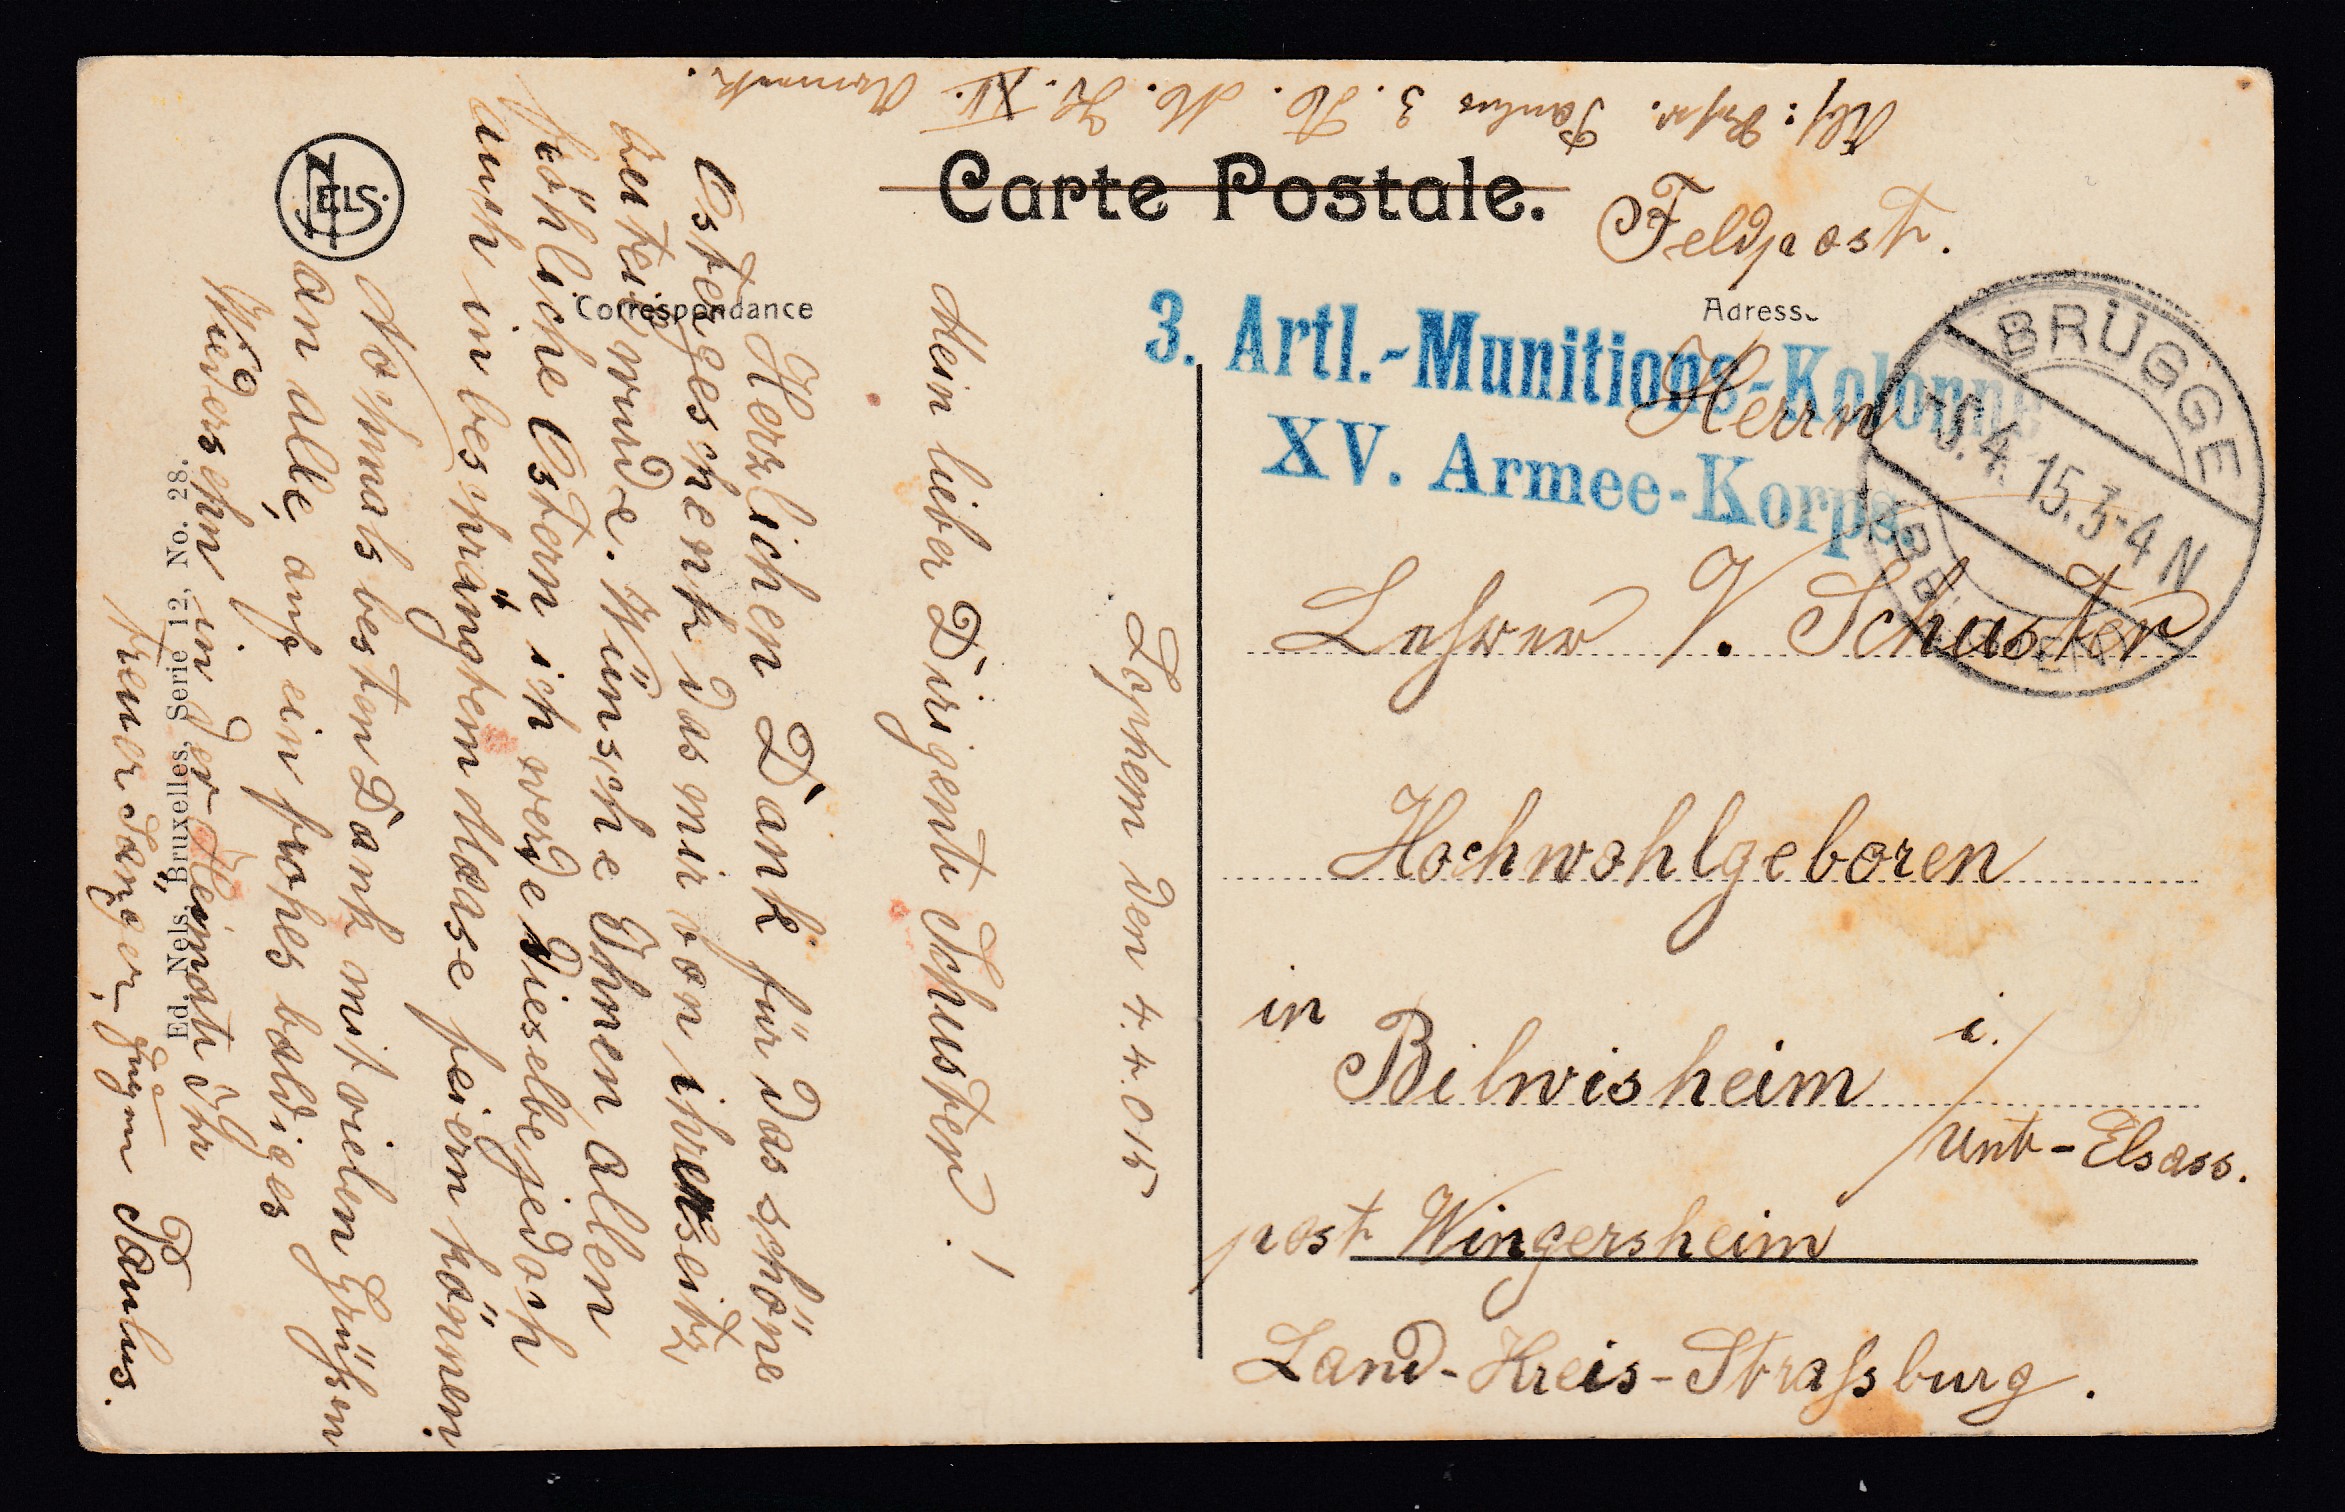 Abs: Paulus 3. Ab. M. K. XV. Armeek.
Carte Postale.
Feldpost.
Correspondance
Adress
3. Artl.-Munitions-Kolonne
XV. Armee-Korps.
BRÜGGE
-5.4.15.3-4N
Herrn
Lehrer V. Schuster
Hochwohlgeboren
in Bilwisheim i.
Unt-Elsass.
post Wingersheim
Land-Kreis-Straſsburg.
Lophem den 4.4.015
Mein lieber Dirigent Schuster!
Herzlichen Dank für das schöne
Ostergeschenk das mir von ihrerseitz
zuteil wurde. Wünsche Ihnen allen
fröhliche Ostern ich werde dieselbe jedoch
auch in beschrängtem Maase feiern können.
Nochmals besten Dank mit vielen Grüßen
an alle, auf ein frohes baldiges
Wiedersehn in der Heimat Ihr
treuer Sänger Eugen Paulus.
NELS
Ed. Nels, Bruxelles, Serie 12, No. 28.